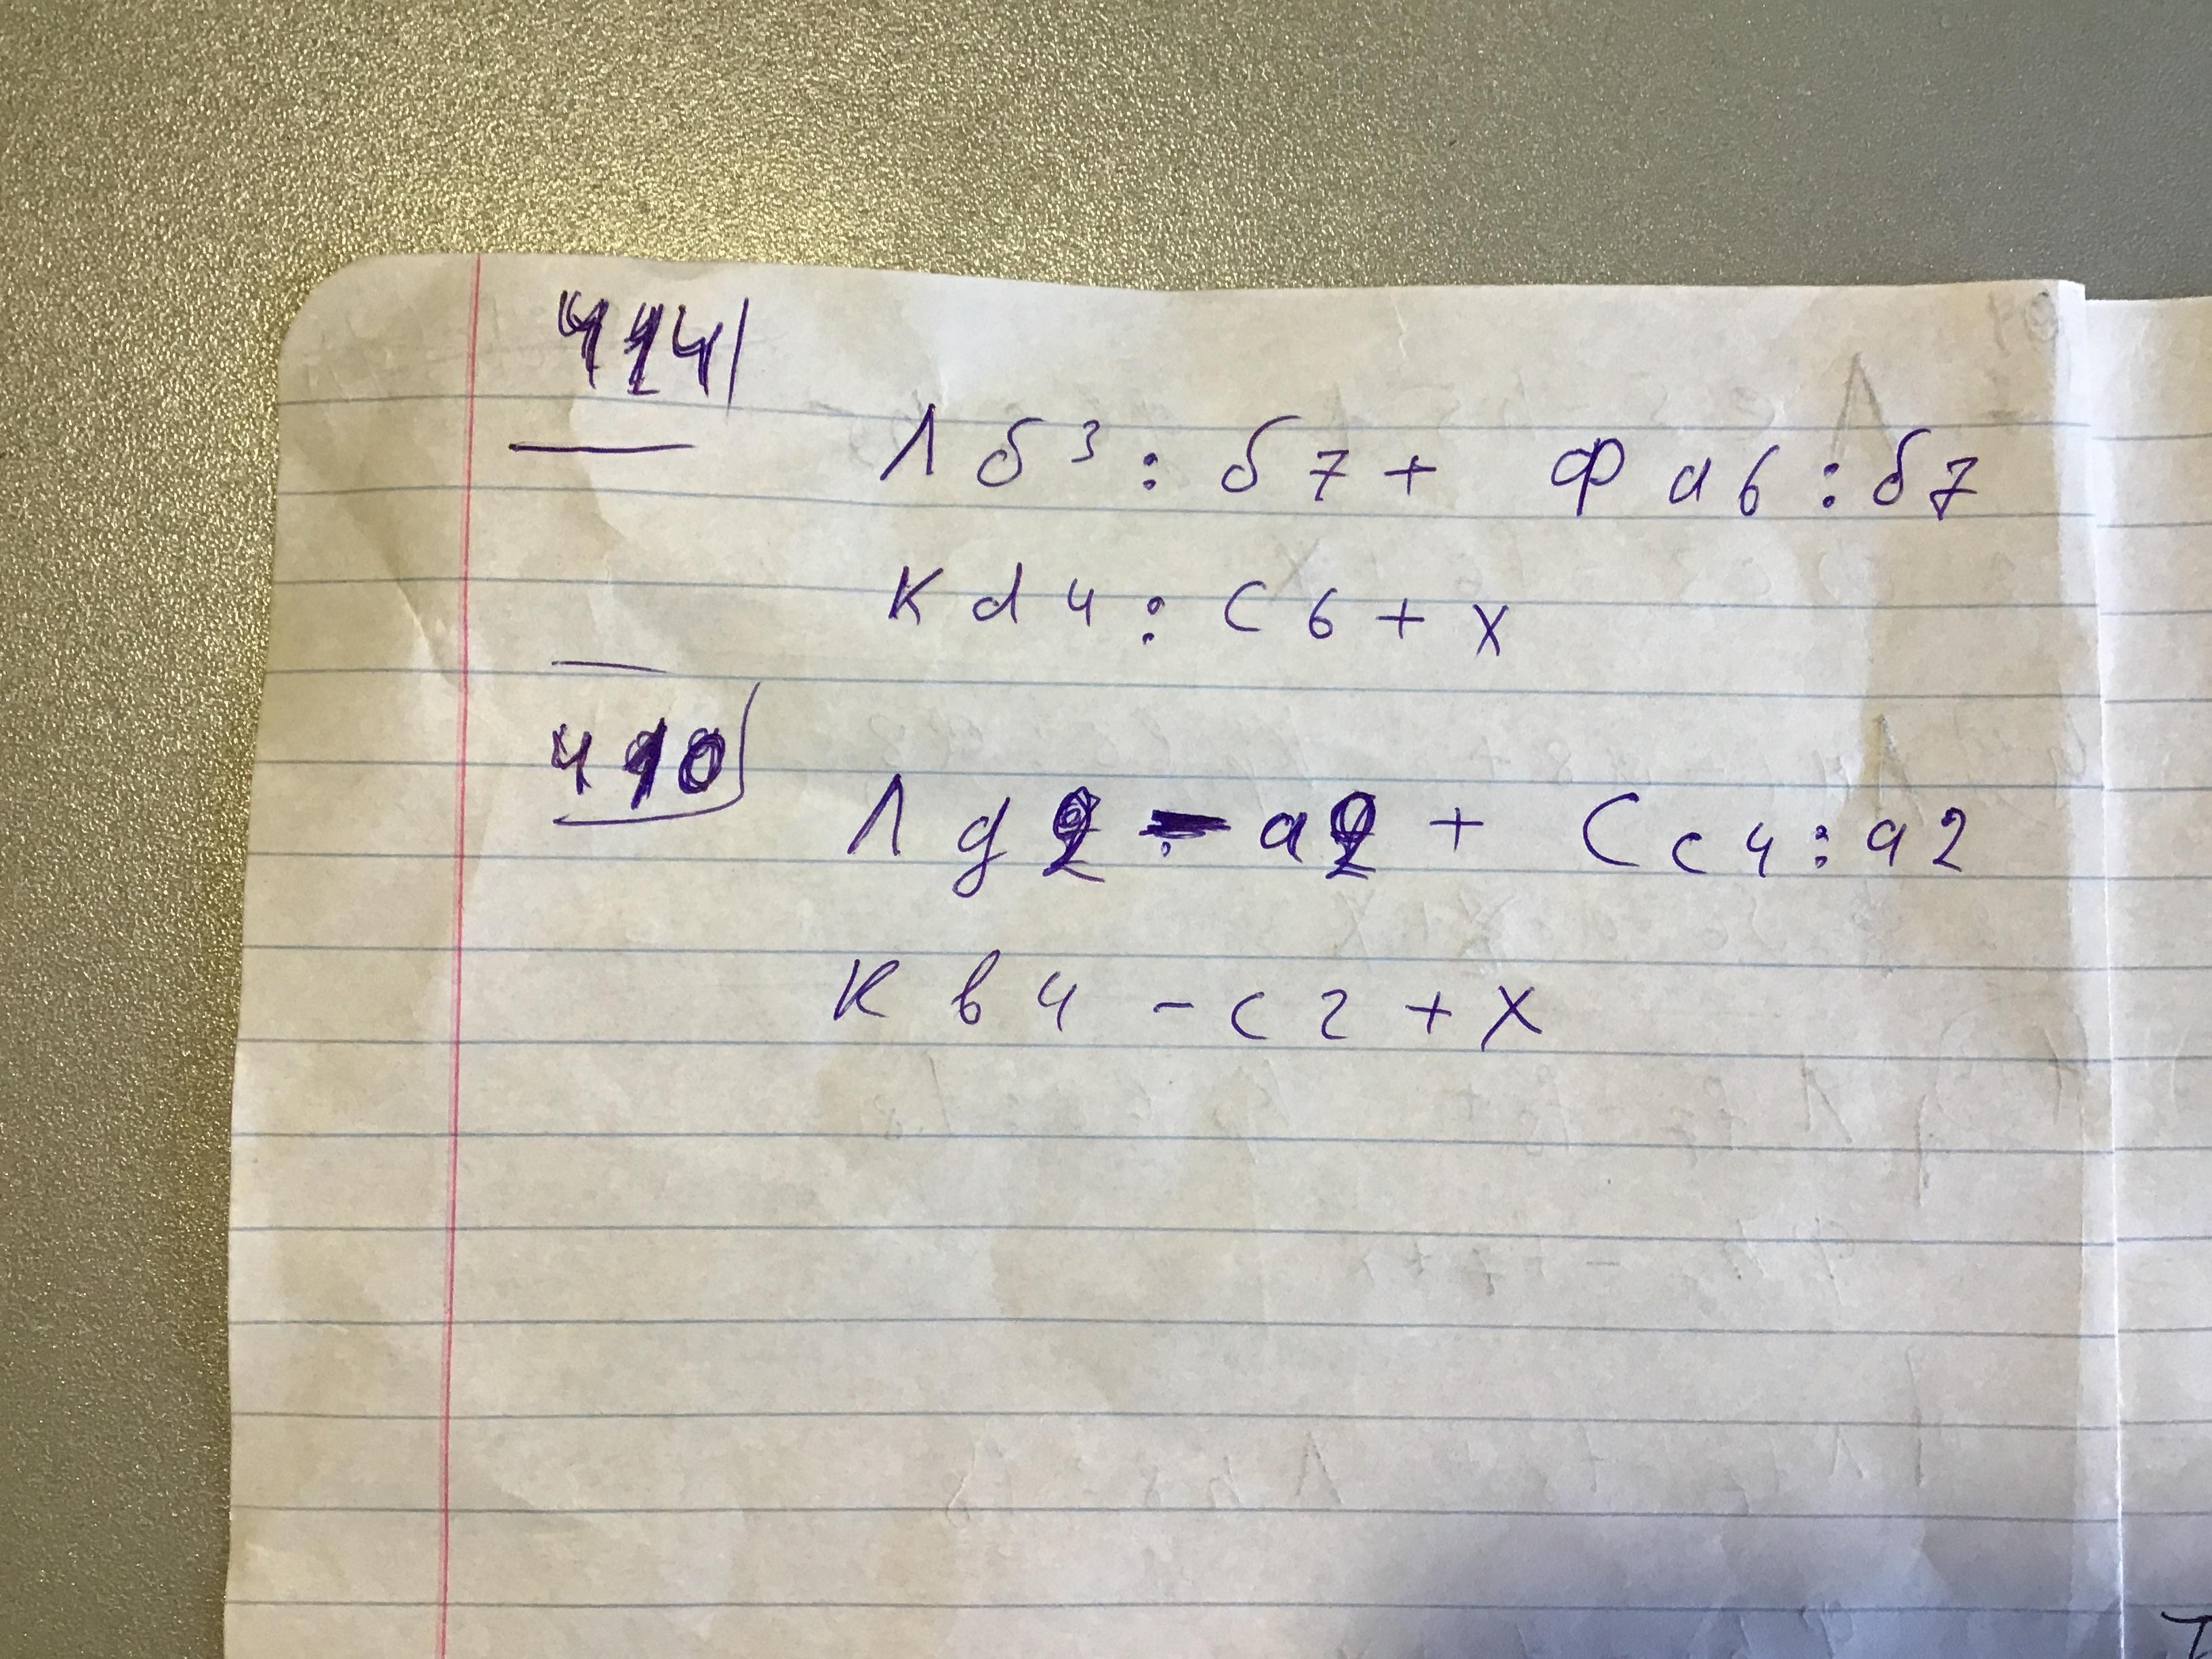 414
Л б3 : б7 + Ф а6 : б7
К d4 : С6 + Х
410
Л g2 - а2 + С с4 : а2
К в4 - с2 + Х